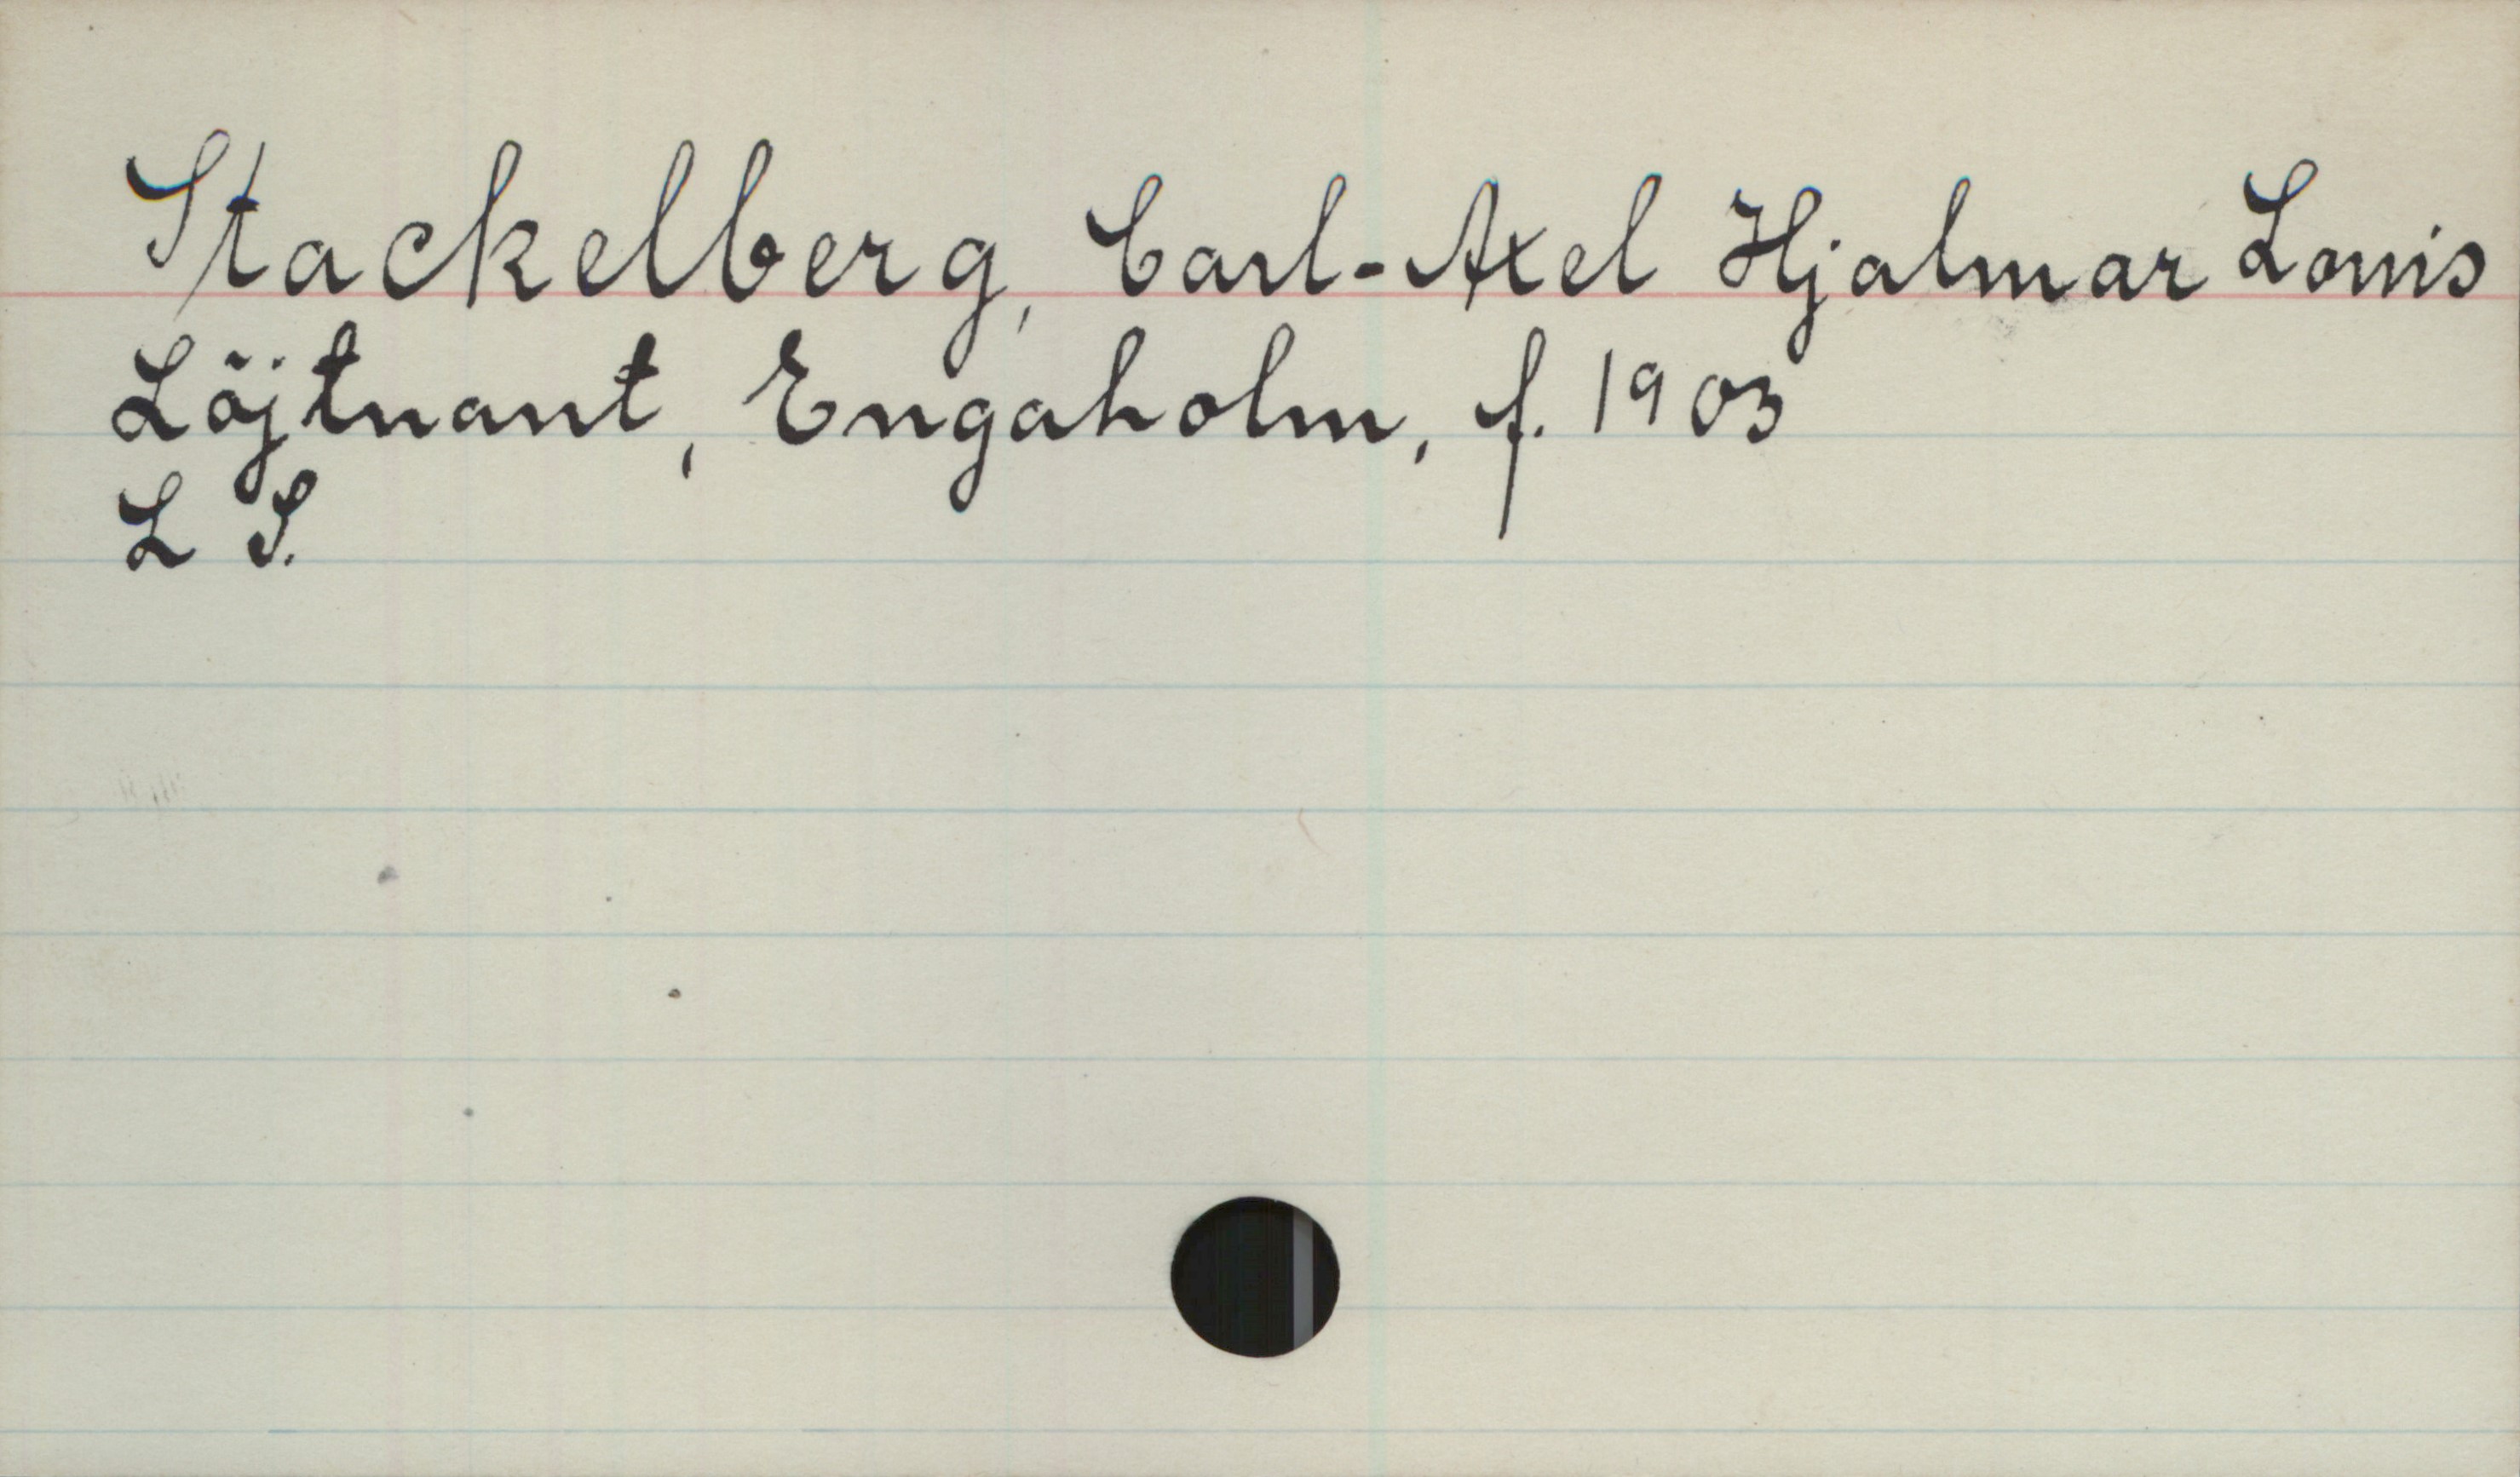 Stackelberg, Carl-Axel Hjalmar Louis
Löjtnant, Engaholm, f. 1903
L S.